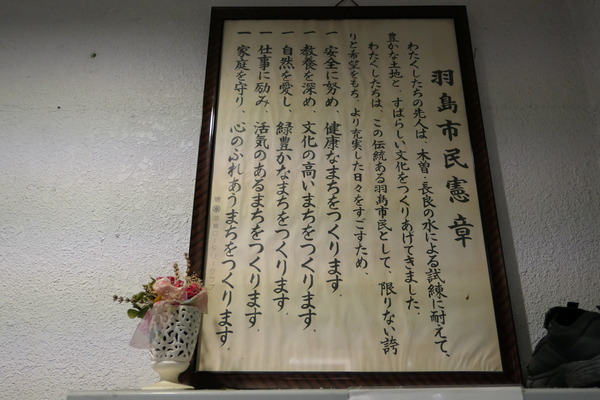 羽島市民憲章
わたくしたちの先人は、木曽・長良の水による試練に耐えて、
豊かな土地と、すばらしい文化をつくりあげてきました。
わたくしたちは、この伝統ある羽島市民として、限りない誇
りと希望をもち、より充実した日々をすごすため、
一 安全に努め、健康なまちをつくります。
一 教養を深め、文化の高いまちをつくります。
一 自然を愛し、緑豊かなまちをつくります。
一 仕事に励み、活気のあるまちをつくります。
一 家庭を守り、心のふれあうまちをつくります。